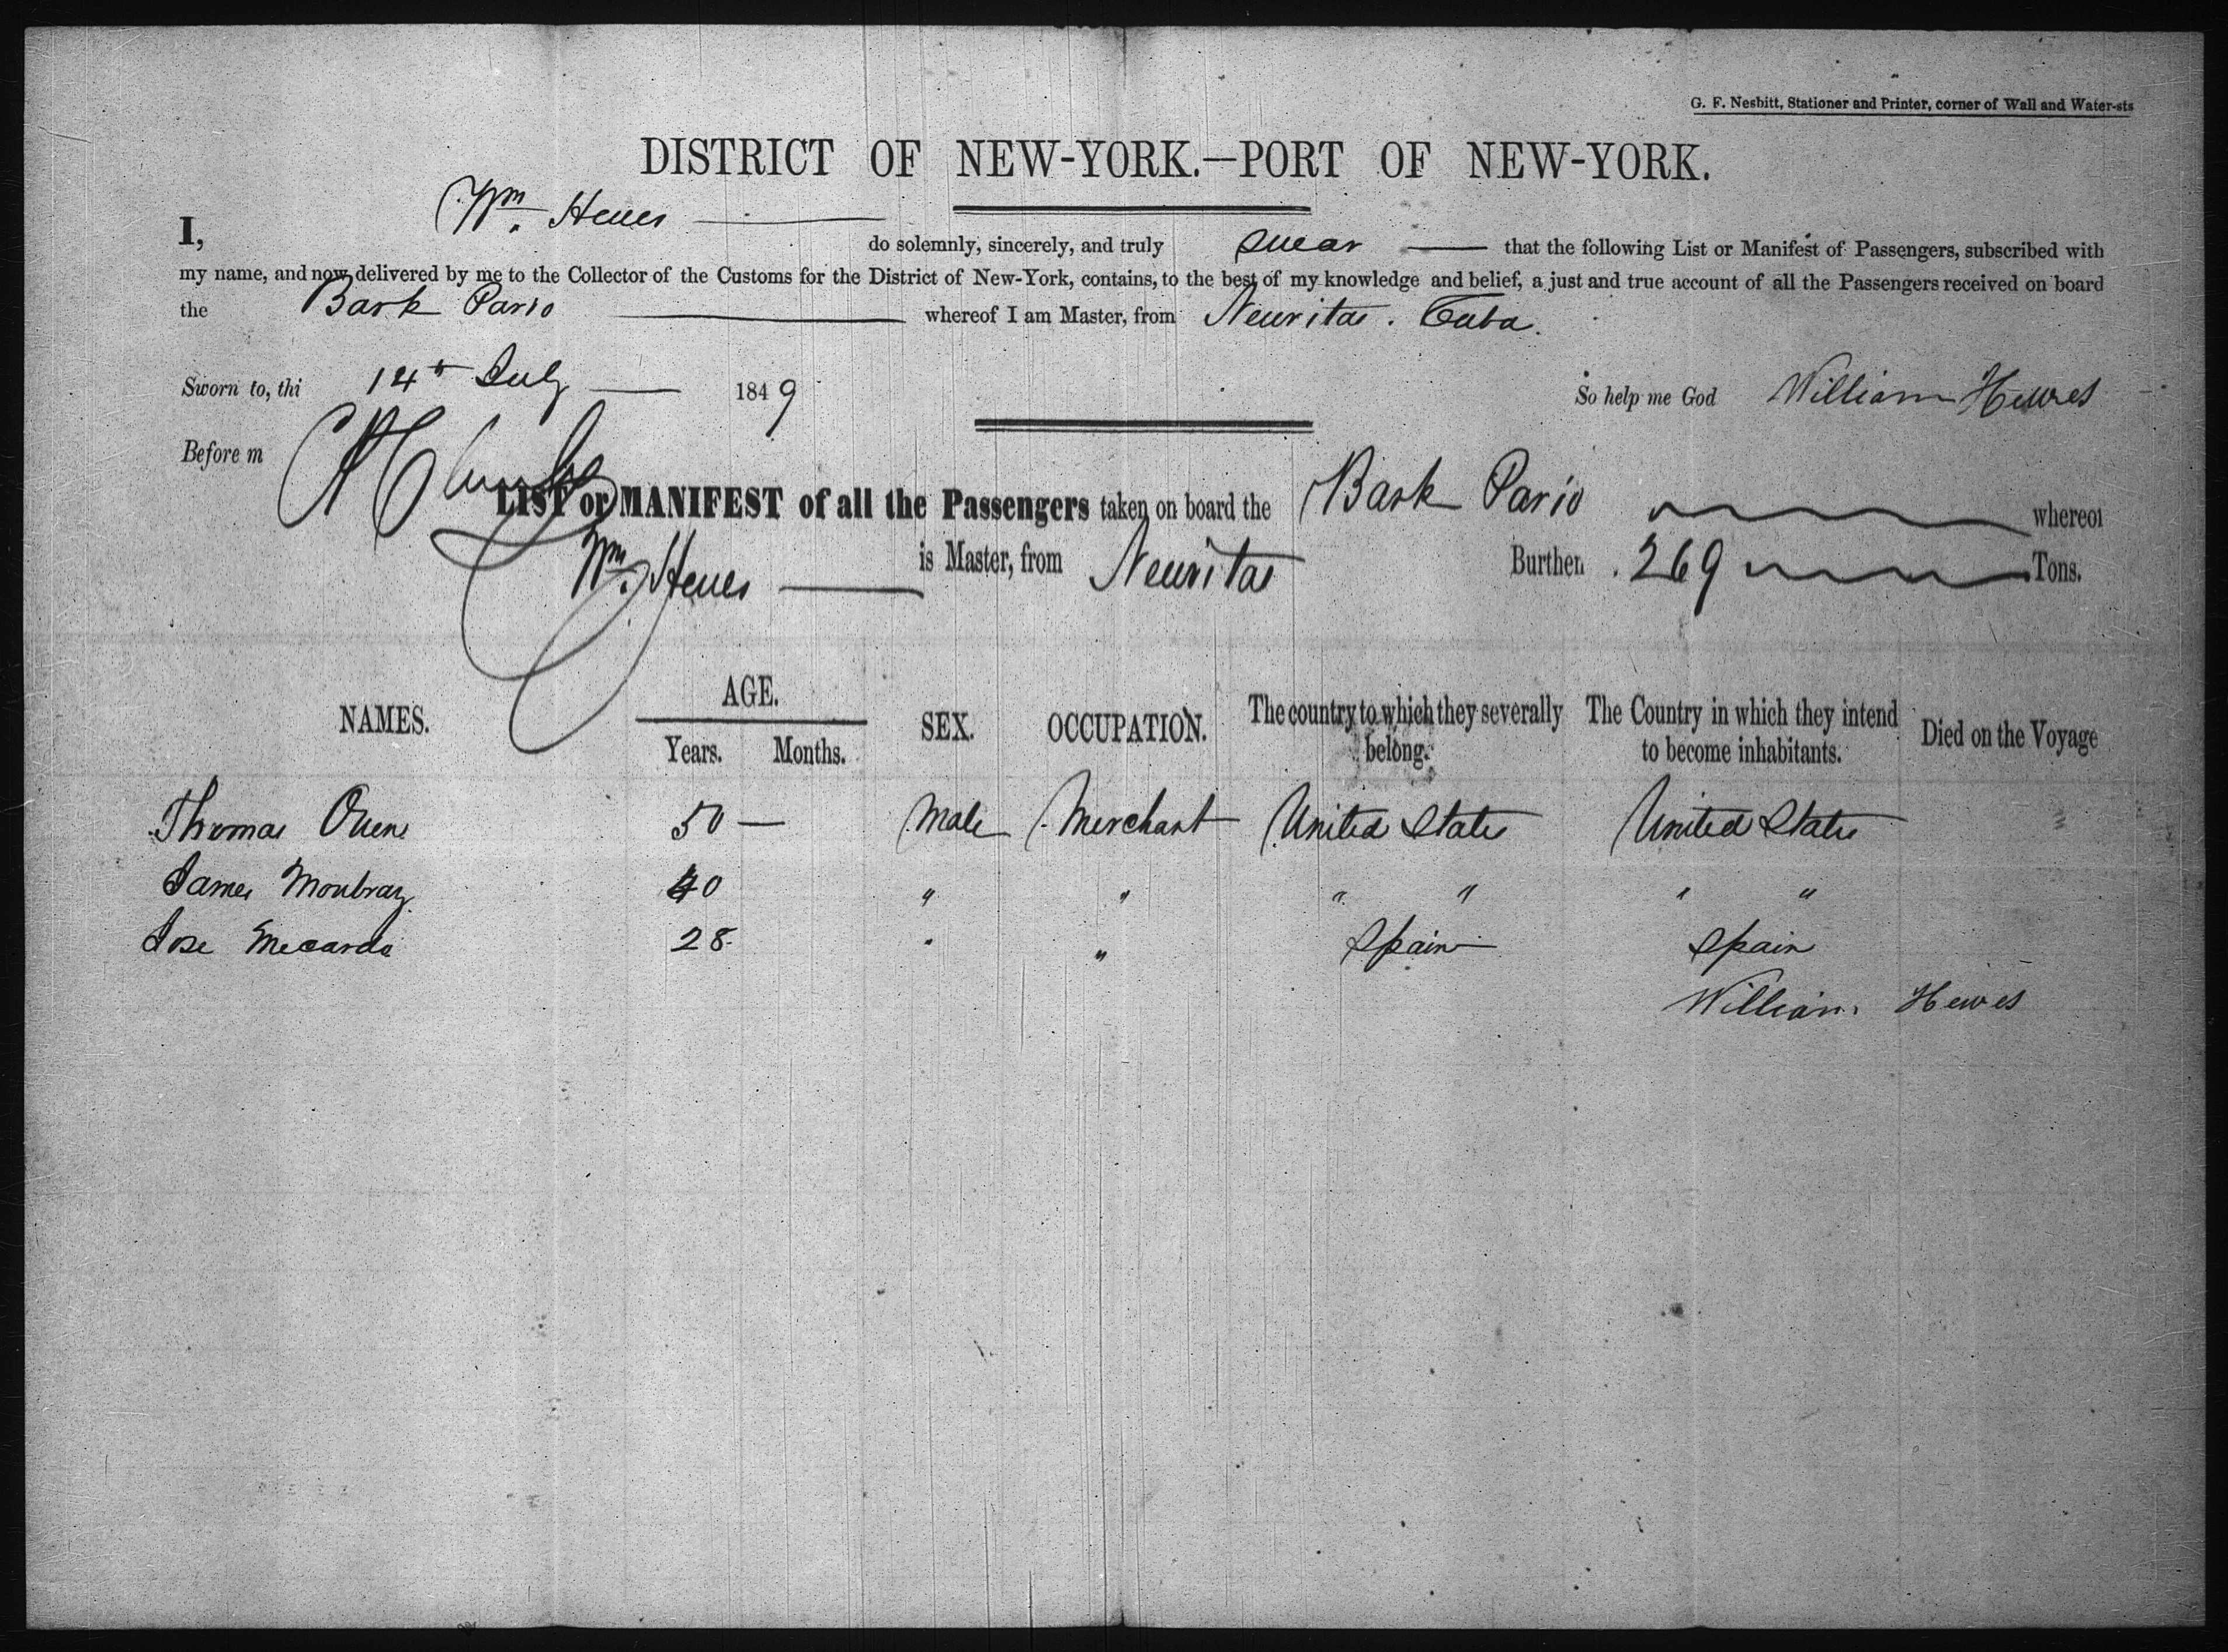 G. F. Nesbitt, Stationer and Printer, corner of Wall and Water-sts
DISTRICT OF NEW-YORK.—PORT OF NEW-YORK.
I, Wm. Hewes do solemnly, sincerely, and truly swear that the following List or Manifest of Passengers, subscribed with
my name, and now delivered by me to the Collector of the Customs for the District of New-York, contains, to the best of my knowledge and belief, a just and true account of all the Passengers received on board
the Bark Pario whereof I am Master, from Neuvitas. Cuba.
Sworn to, thi 14th July 1849 So help me God William Hewes
Before m
LIST or MANIFEST of all the Passengers taken on board the Bark Pario whereof
Wm. Hewes is Master, from Neuvitas Burthen 269 Tons.
NAMES. AGE. Years. Months. SEX. OCCUPATION. The country to which they severally belong. The Country in which they intend to become inhabitants. Died on the Voyage
Thomas Owens 50 — Male Merchant United States United States
James Moubray 40 " " " " " "
Jose Mecardo 28 " " Spain Spain
William Hewes